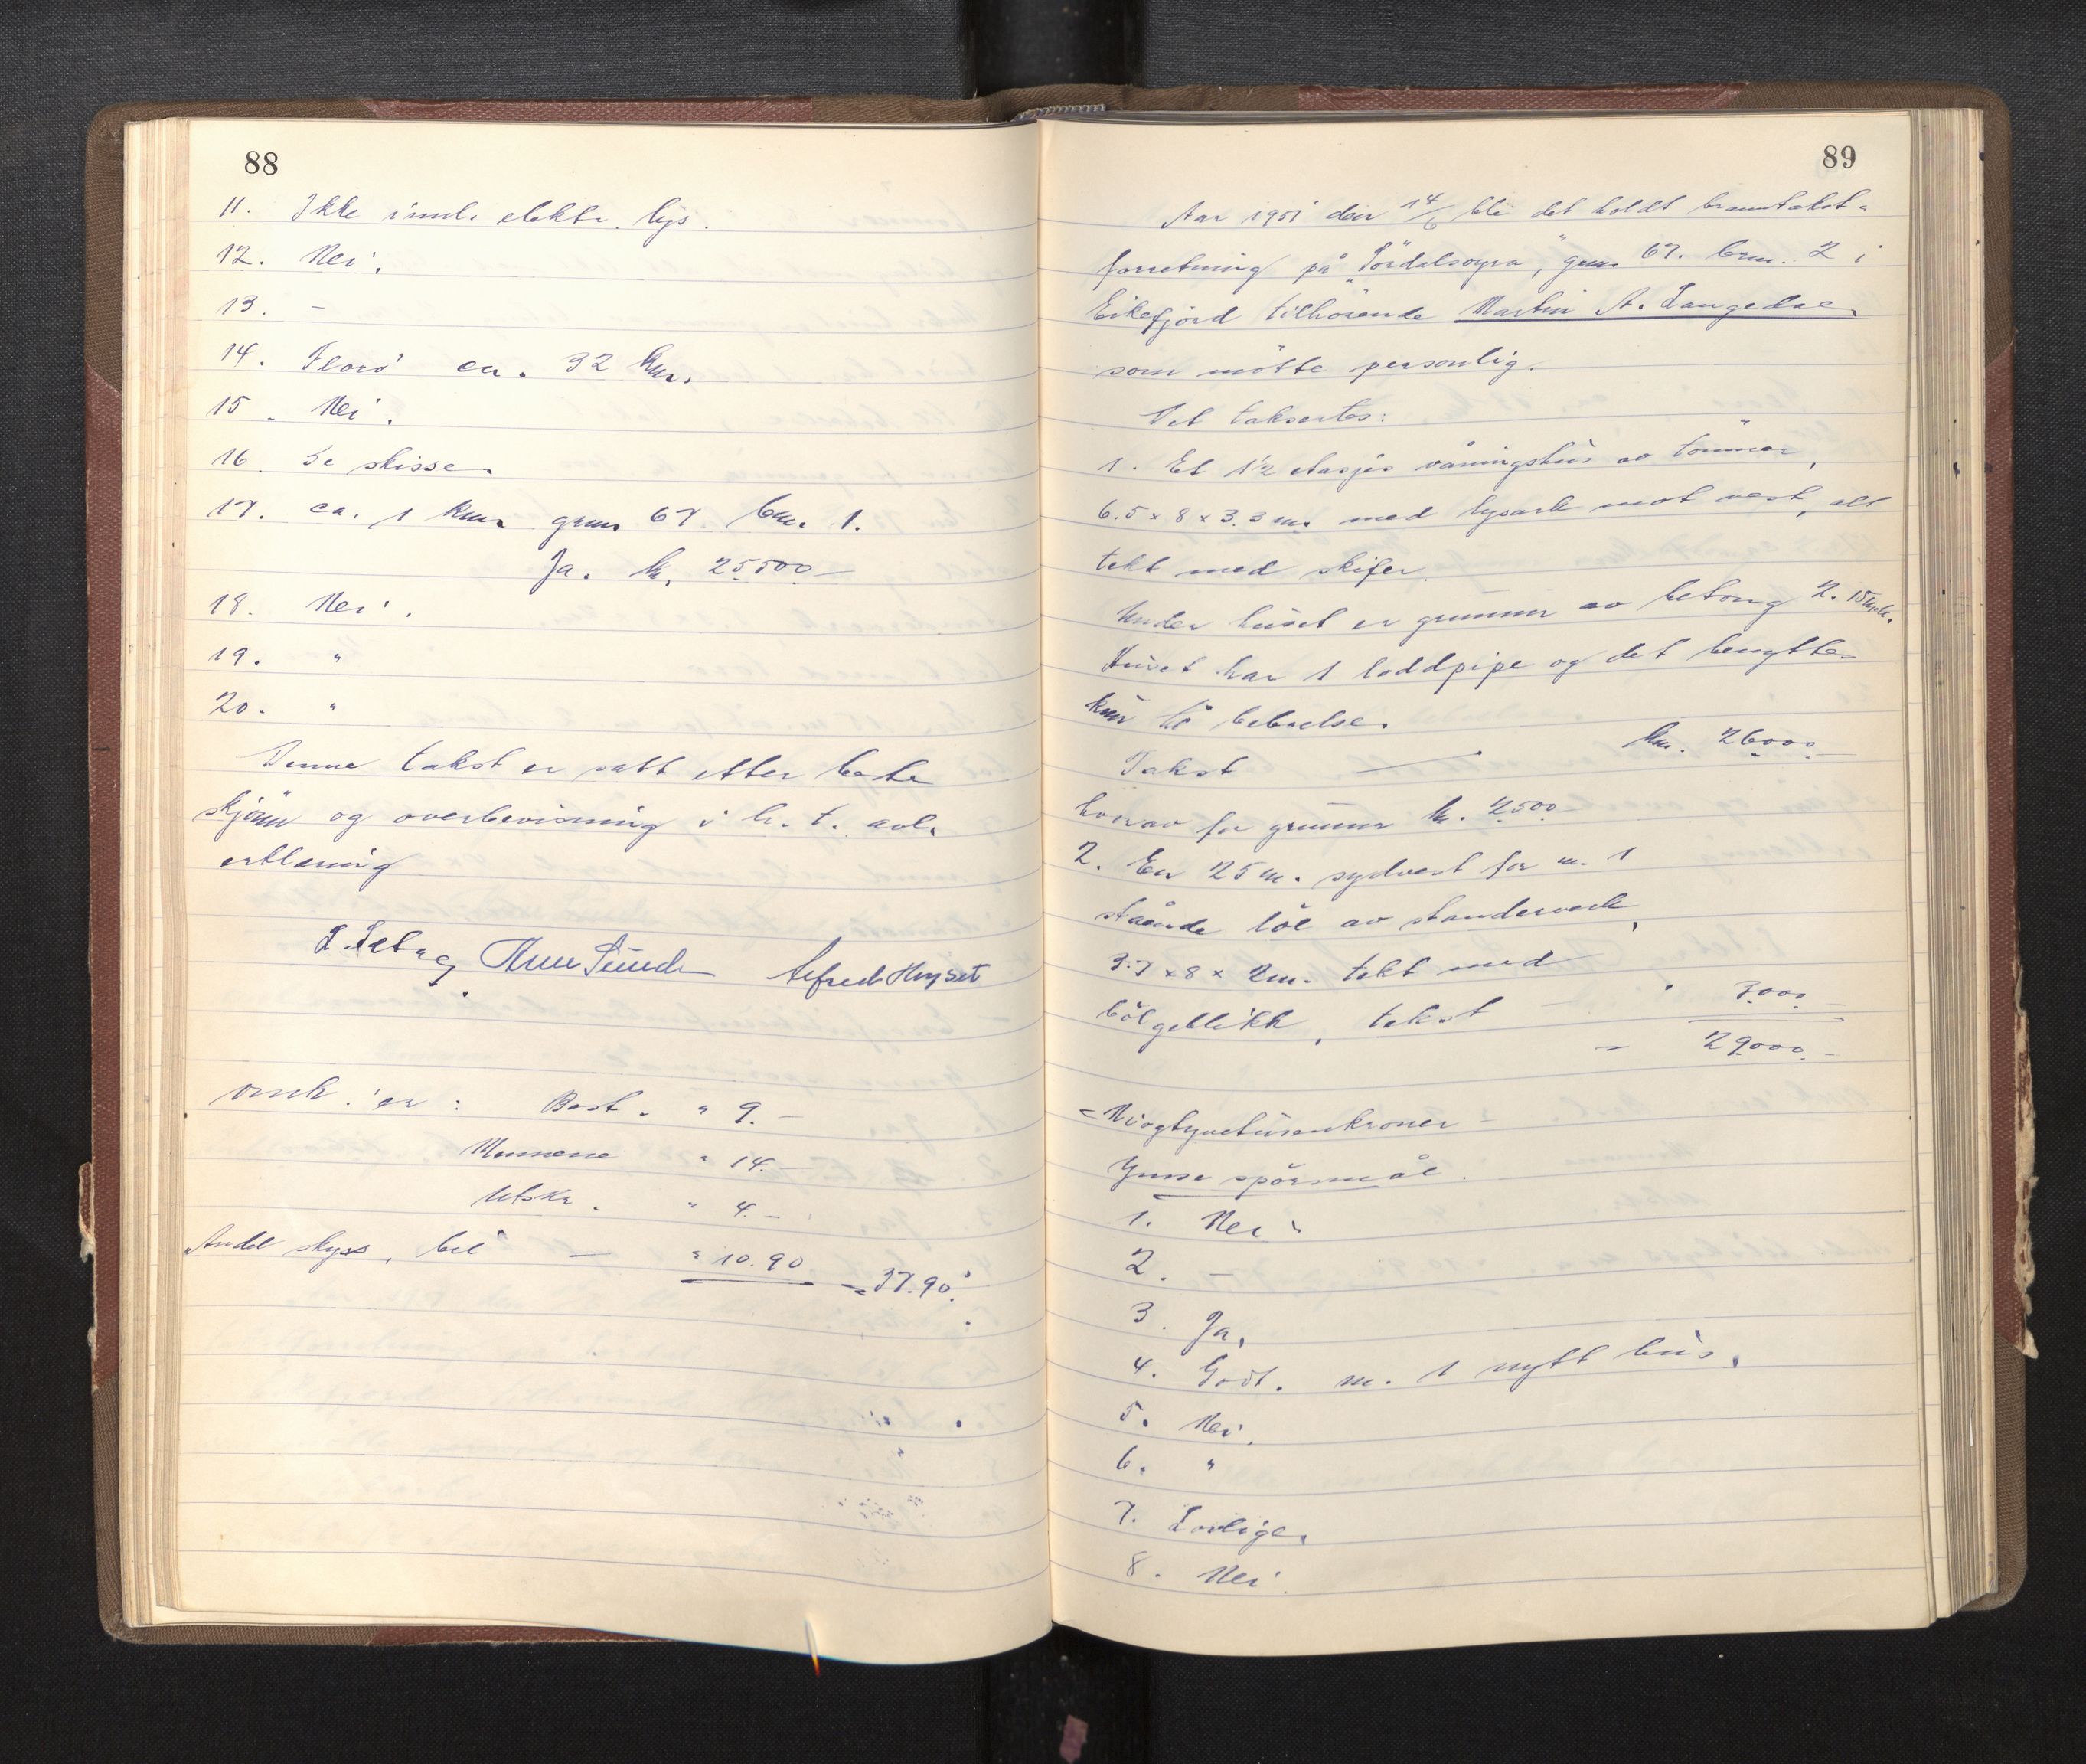 88
11. Ikke innl. elektr. lys.
12. Nei.
13. –
14. Florö ca. 32 km.
15. Nei.
16. Se skisse.
17. ca. 1 km gnr. 67 bnr. 1.
Ja. kr. 25500 –
18. Nei.
19. "
20. "
Denne takst er satt etter beste
skjönn og overbevisning i h. t. avl.
erklæring
Alfred Húyset
Omk. er : Best. " 9. –
Mennene " 14. –
Utskr. " 4. –
Andel skyss, bil – " 10.90 = 37.90.
89
Aar 1951 den 14/6 ble det holdt branntakst-
forretning på "Sördalsøyra", gnr. 67. bnr. 2 i
Eikefjord tilhörende Martin A. Langedal,
som mötte personlig.
Det taksertes:
1. Et 1½ etasjes våningshus av tömmer,
6.5 x 8 x 3.3 m. med lysark mot vest, alt
tekt med skifer.
Under huset er grunnmur av betong 2.15
Huset har 1 loddpipe og det benyttes
kun til beboelse.
Takst — kr. 26000. –
hvorav for grunnmur kr. 2500
2. En 25 m. sydvest for nr. 1
stående löe av standerverk,
3.7 x 8 x 2 m. tekt med
bölgeblikk, takst – " 3000. –
= 29000. –
= Niogtyvetusenkroner =
Ymse spörsmål.
1. Nei
2. –
3. Ja.
4. Godt. nr. 1 nytt hus.
5. Nei.
6. "
7. Lovlige.
8. Nei.